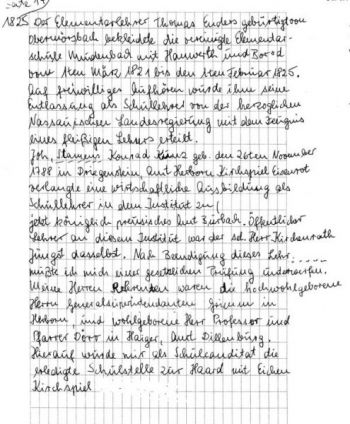 Seite 17
1825 Der Elementarlehrer Thomas Enders gebürtig von
Obermörsbach bekleidete die vereinigte Elementar-
schule Mündersbach mit Hanwerth und Borod
vom 1ten März 1821 bis den 1ten Februar 1825.
Auf freiwilliges Aufhören wurde ihm seine
Entlassung als Schullehrer von der herzoglichen
Nassauischen Landesregierung mit dem Zeugnis
eines fleißigen Lehrers erteilt.
Joh. Konrad geb. den 26ten November
1788 in Driegenstein, Amt Herborn Kirchspiel Eisenrot
verlangte eine wirtschaftliche Ausbildung als
Schullehrer in dem Institut zu (
jetzt königlich preusisches Amt Burbach. Öffentlicher
Lehrer an diesem Institut war der sel. Herr Kirchenrath
Jüngst dasselbst. Nach Beendigung dieses Lehr.....
mußte ich mich einer gesetzlichen Prüfung unterwerfen.
Meine Herren waren die hochwohlgeborene
Herrn Generalsuperintendanten in
Herborn, und wohlgeborene Herr Professor und
Pfarrer Dorr in Haiger, Amt Dillenburg.
Hierauf wurde mir als Schulcandidat die
erledigte Schulstelle zur Haard mit Eichen
Kirchspiel